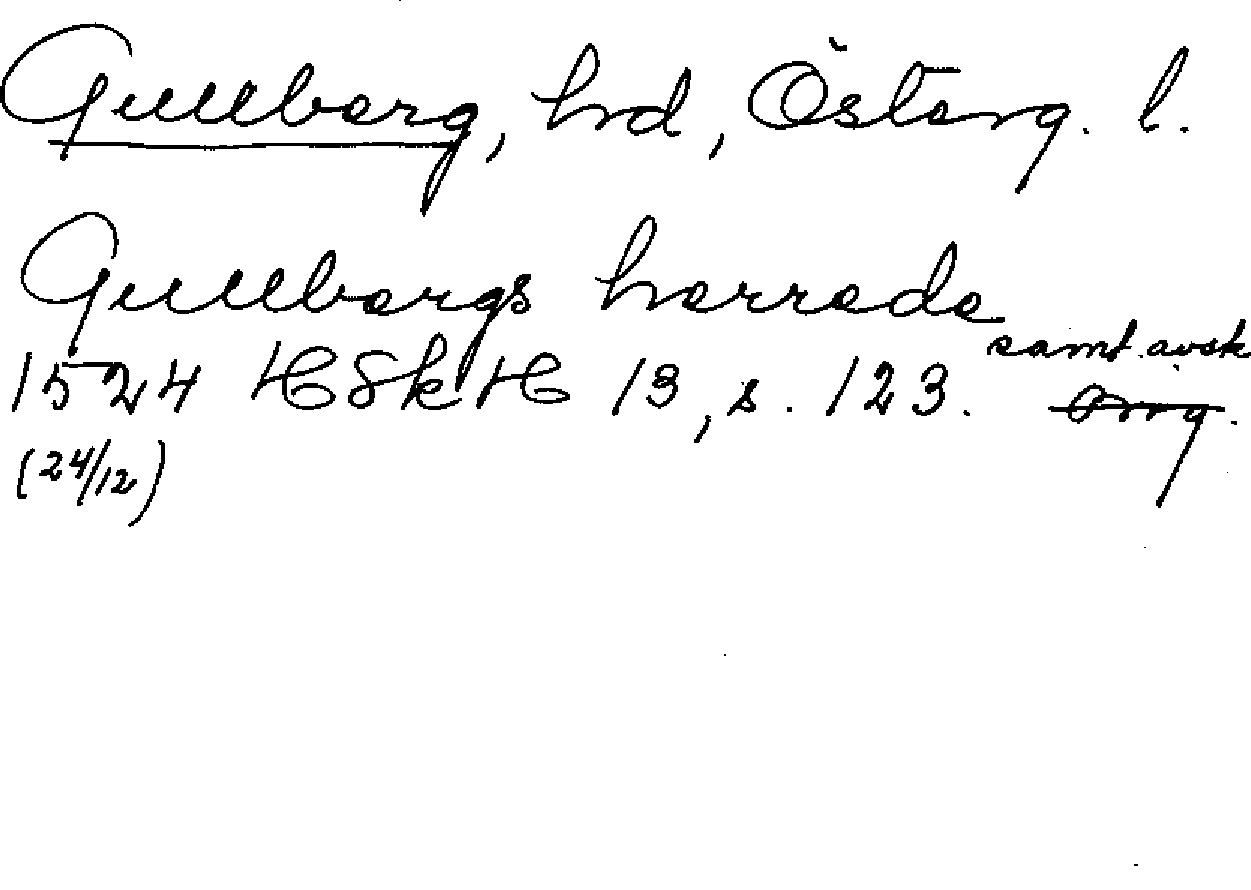 Gullberg, hd, Österg. l.
Gullbergs herrede
samt. avsk
1524 HSkH 13, s. 123. Orig.
(24/12)